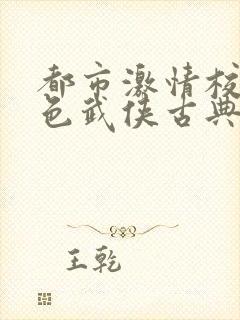 都市激情校
色武侠古典
王乾